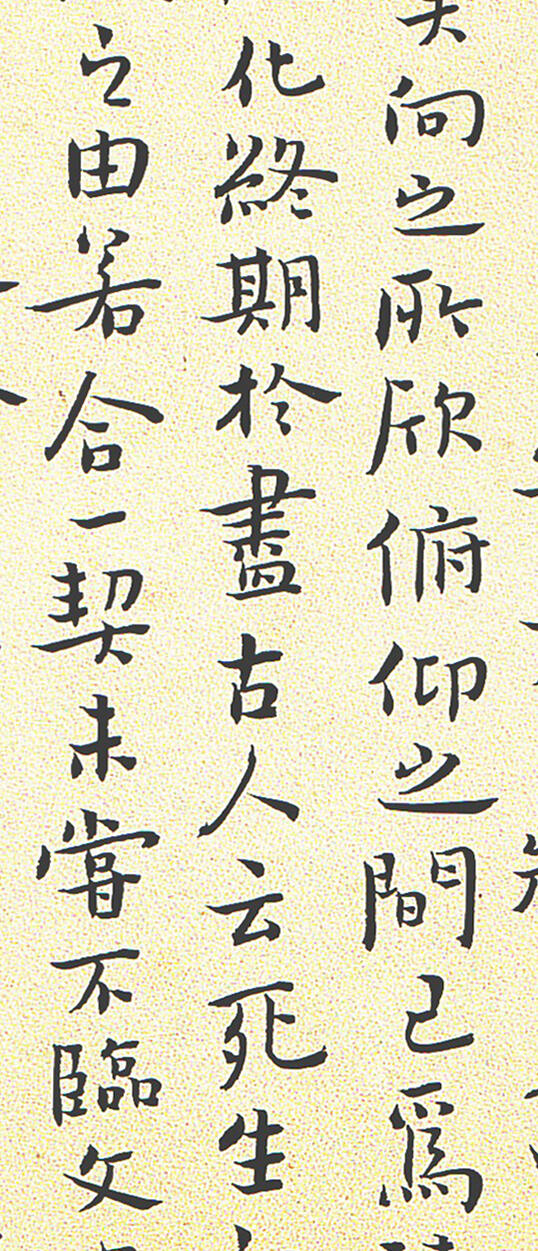 向之所欣俯仰之間已爲
化終期於盡古人云死生
之由若合一契未嘗不臨文